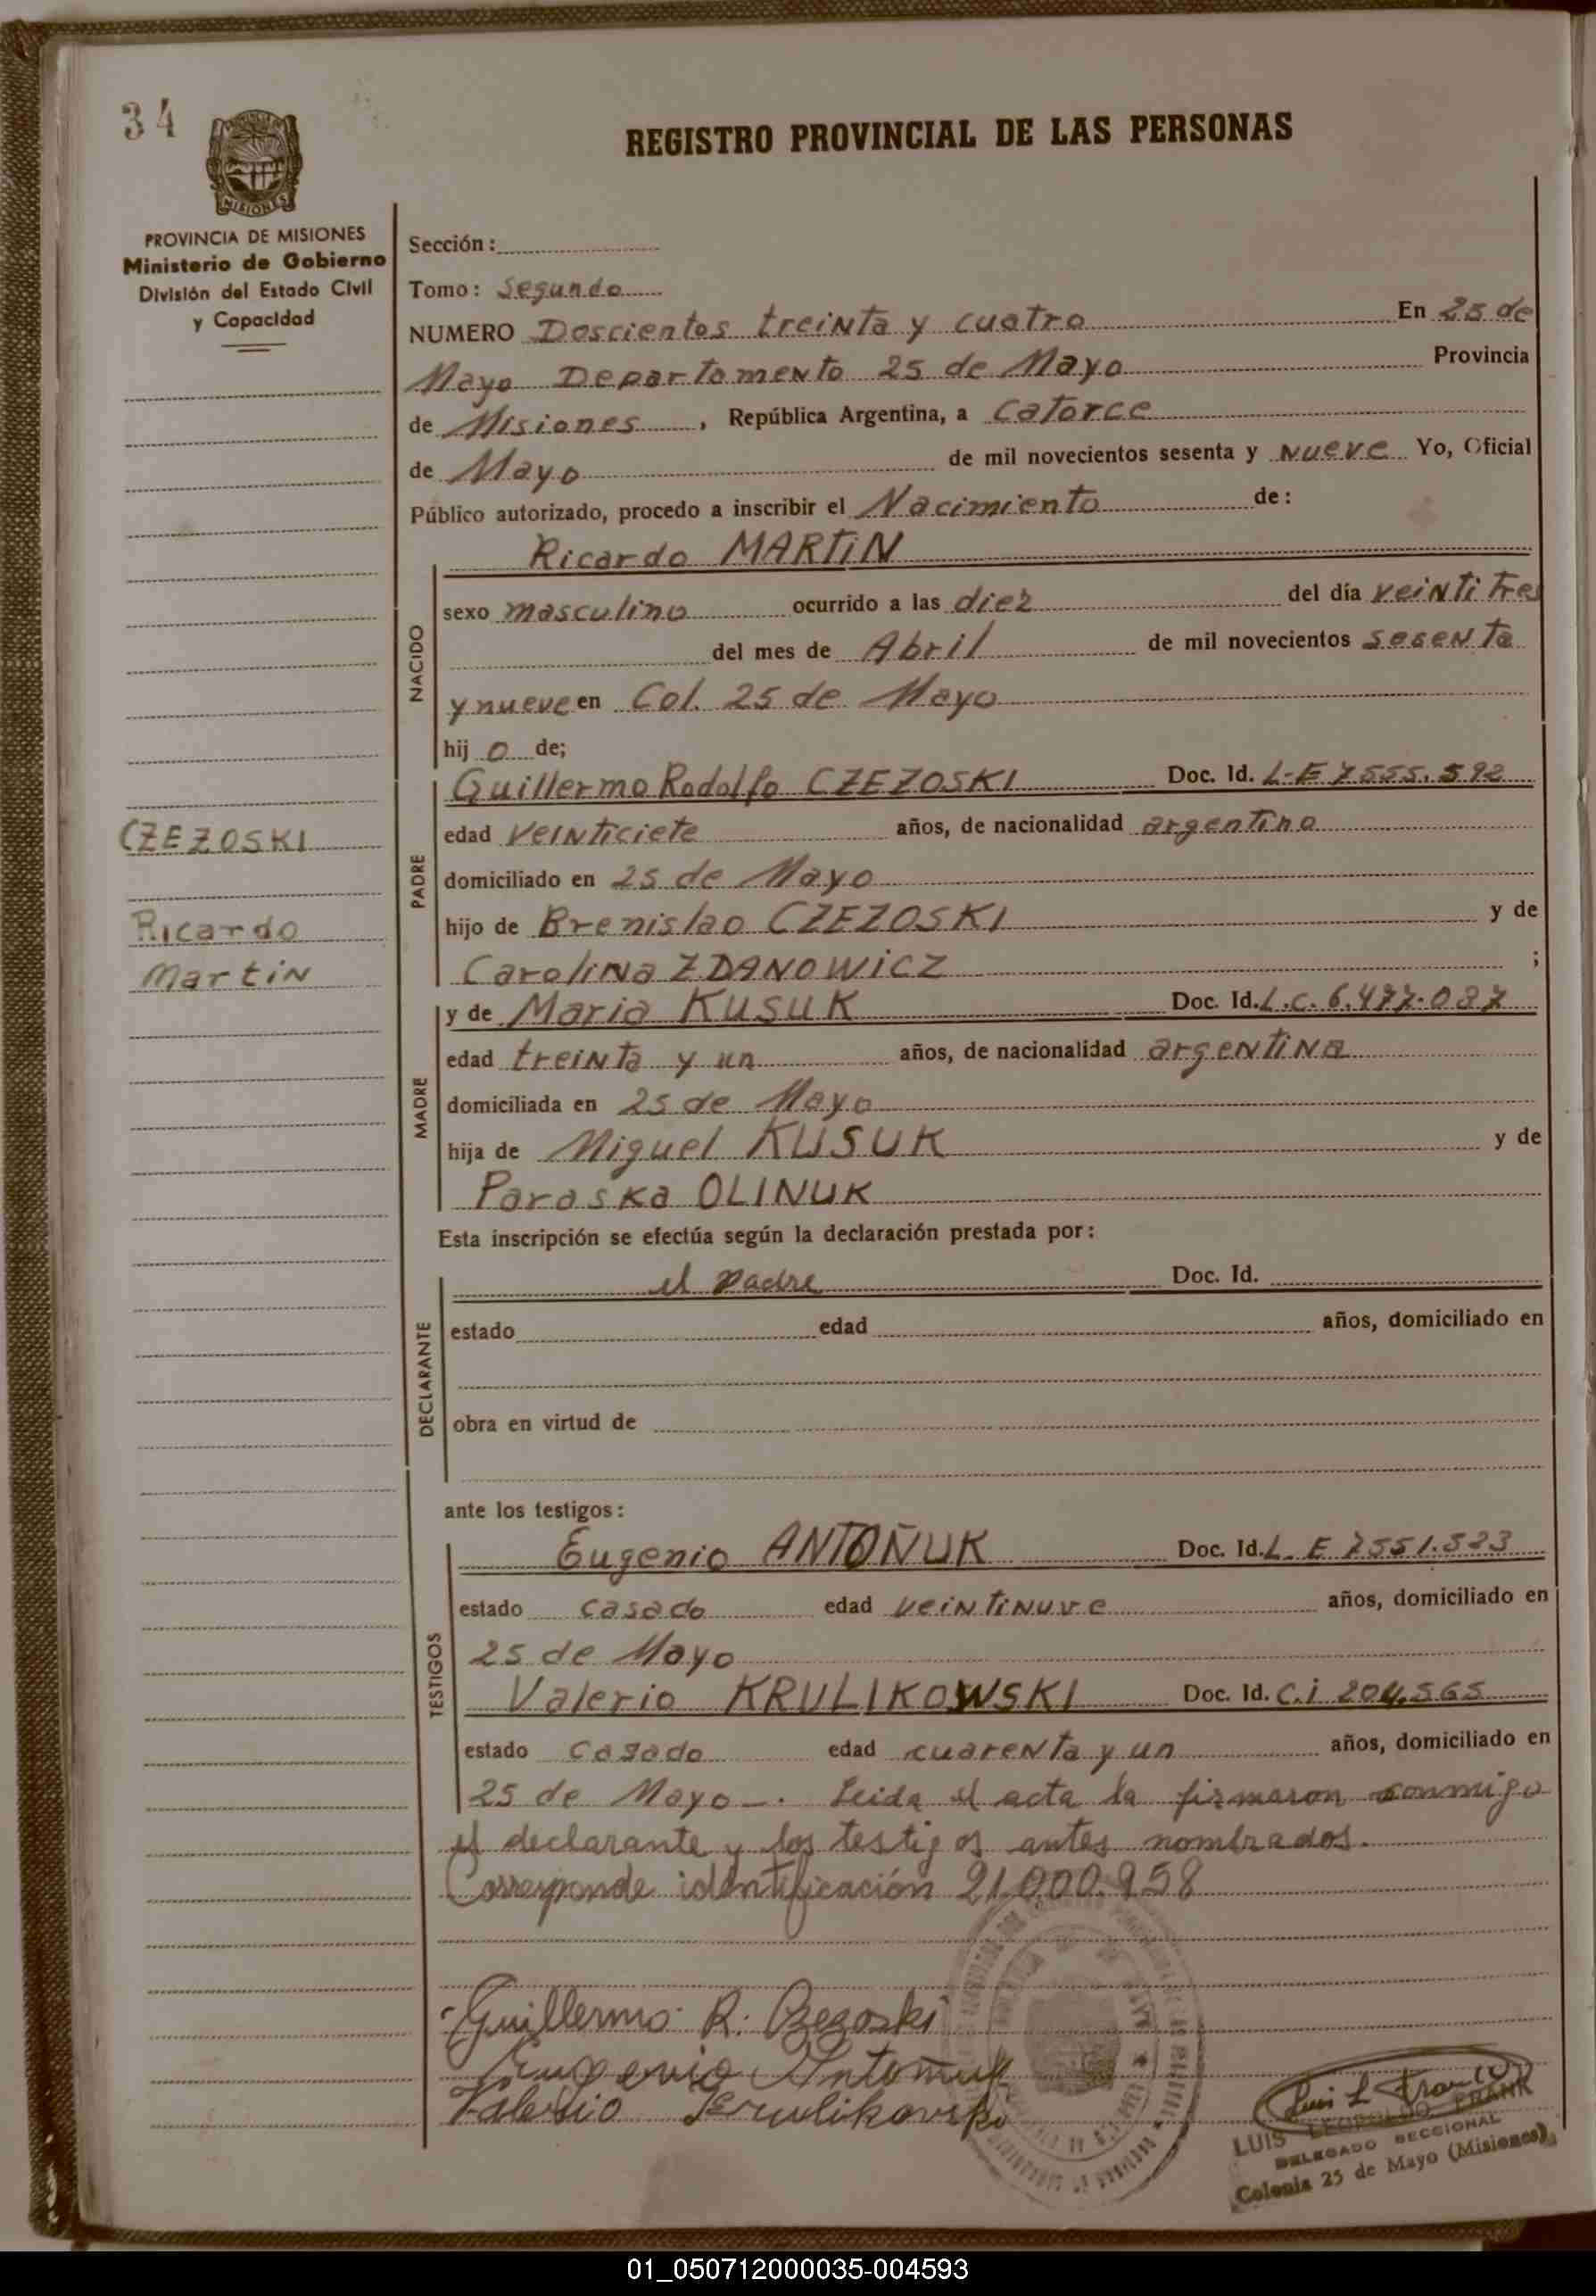 34
REGISTRO PROVINCIAL DE LAS PERSONAS
PROVINCIA DE MISIONES
Ministerio de Gobierno
División del Estado Civil
y Capacidad
Sección:
Tomo: Segundo
NUMERO Doscientos treinta y cuatro En 25 de
Mayo Departamento 25 de Mayo Provincia
de Misiones, República Argentina, a Catorce
de Mayo de mil novecientos sesenta y nueve Yo, Oficial
Público autorizado, procedo a inscribir el Nacimiento de:
Ricardo MARTIN
NACIDO
sexo masculino ocurrido a las diez del día veintitres
del mes de Abril de mil novecientos sesenta
y nueve en Col. 25 de Mayo
hij o de;
PADRE
Guillermo Rodolfo CZEZOSKI Doc. Id. L-E 7.555.592
edad veinticiete años, de nacionalidad argentino
domiciliado en 25 de Mayo
hijo de Brenislao CZEZOSKI y de
Carolina ZDANOWICZ ;
CZEZOSKI
Ricardo
Martin
MADRE
y de Maria KUSUK Doc. Id. L.C. 6.477.087
edad treinta y un años, de nacionalidad argentina
domiciliada en 25 de Mayo
hija de Miguel KUSUK y de
Paraska OLINUK
Esta inscripción se efectúa según la declaración prestada por:
DECLARANTE
el padre Doc. Id.
estado edad años, domiciliado en
obra en virtud de
ante los testigos:
TESTIGOS
Eugenio ANTOÑUK Doc. Id. L.E 7551.323
estado casado edad veintinuve años, domiciliado en
25 de Mayo
Valerio KRULIKOWSKI Doc. Id. C.i 204.565
estado casado edad cuarenta y un años, domiciliado en
25 de Mayo -. Leida el acta la firmaron conmigo
el declarante y los testigos antes nombrados.
Corresponde identificación 21.000.958
Guillermo R. Czezoski
Eugenio Antoñuk
Valerio Krulikowski
Luis L Franco
LUIS LEOPOLDO FRANK
DELEGADO SECCIONAL
Colonia 25 de Mayo (Misiones)
01_050712000035-004593